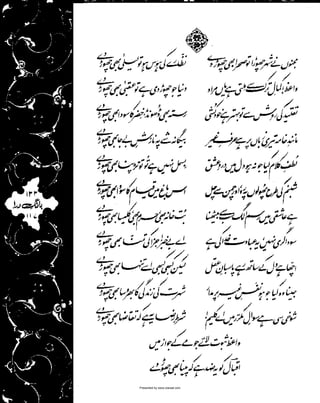 مجنوں نے شہر چھوڑا تو صحرا بھی چھوڑ دے
نظّارے کی ہوس ہو تو لیلیٰ بھی چھوڑ دے
واعظ! کمالِ ترک سے ملتی ہے یاں مراد
دنیا جو چھوڑ دی ہے تو عقبیٰ بھی چھوڑ دے
تقلید کی روش سے تو بہتر ہے خودکُشی
رستہ بھی ڈھونڈ، خضر کا سودا بھی چھوڑ دے
مانندِ خامہ تیری زباں پر ہے حرفِ غیر
بیگانہ شے پہ نازشِ بے جا بھی چھوڑ دے
لطفِ کلام کیا جو نہ ہو دل میں دردِ عشق
بسمل نہیں ہے تو تو تڑپنا بھی چھوڑ دے
شبنم کی طرح پھولوں پہ رو، اور چمن سے چل
اس باغ میں قیام کا سودا بھی چھوڑ دے
ہے عاشقی میں رسم الگ سب سے بیٹھنا
بت خانہ بھی، حرم بھی، کلیسا بھی چھوڑ دے
سوداگری نہیں، یہ عبادت خدا کی ہے
اے بے خبر! جزا کی تمنا بھی چھوڑ دے
اچھا ہے دل کے ساتھ رہے پاسبانِ عقل
لیکن کبھی کبھی اسے تنہا بھی چھوڑ دے
جینا وہ کیا جو ہو نفسِ غیر پر مدار
شہرت کی زندگی کا بھروسا بھی چھوڑ دے
شوخی سی ہے سوالِ مکرر میں اے کلیم!
شرطِ رضا یہ ہے کہ تقاضا بھی چھوڑ دے
واعظ ثبوت لائے جو مے کے جواز میں
اقبال کو یہ ضد ہے کہ پینا بھی چھوڑ دے
بانگِ درا